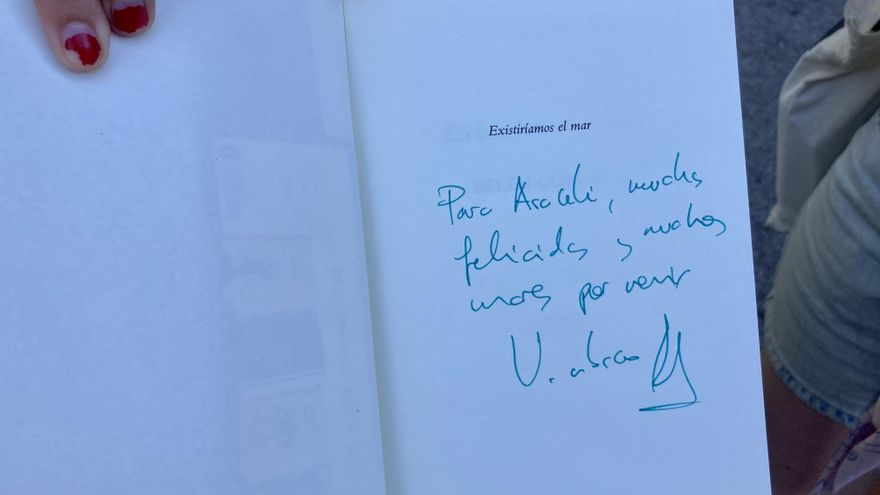 Existiríamos el mar
Para Araceli, muchas
felicidades y muchos
mares por venir
Un abrazo